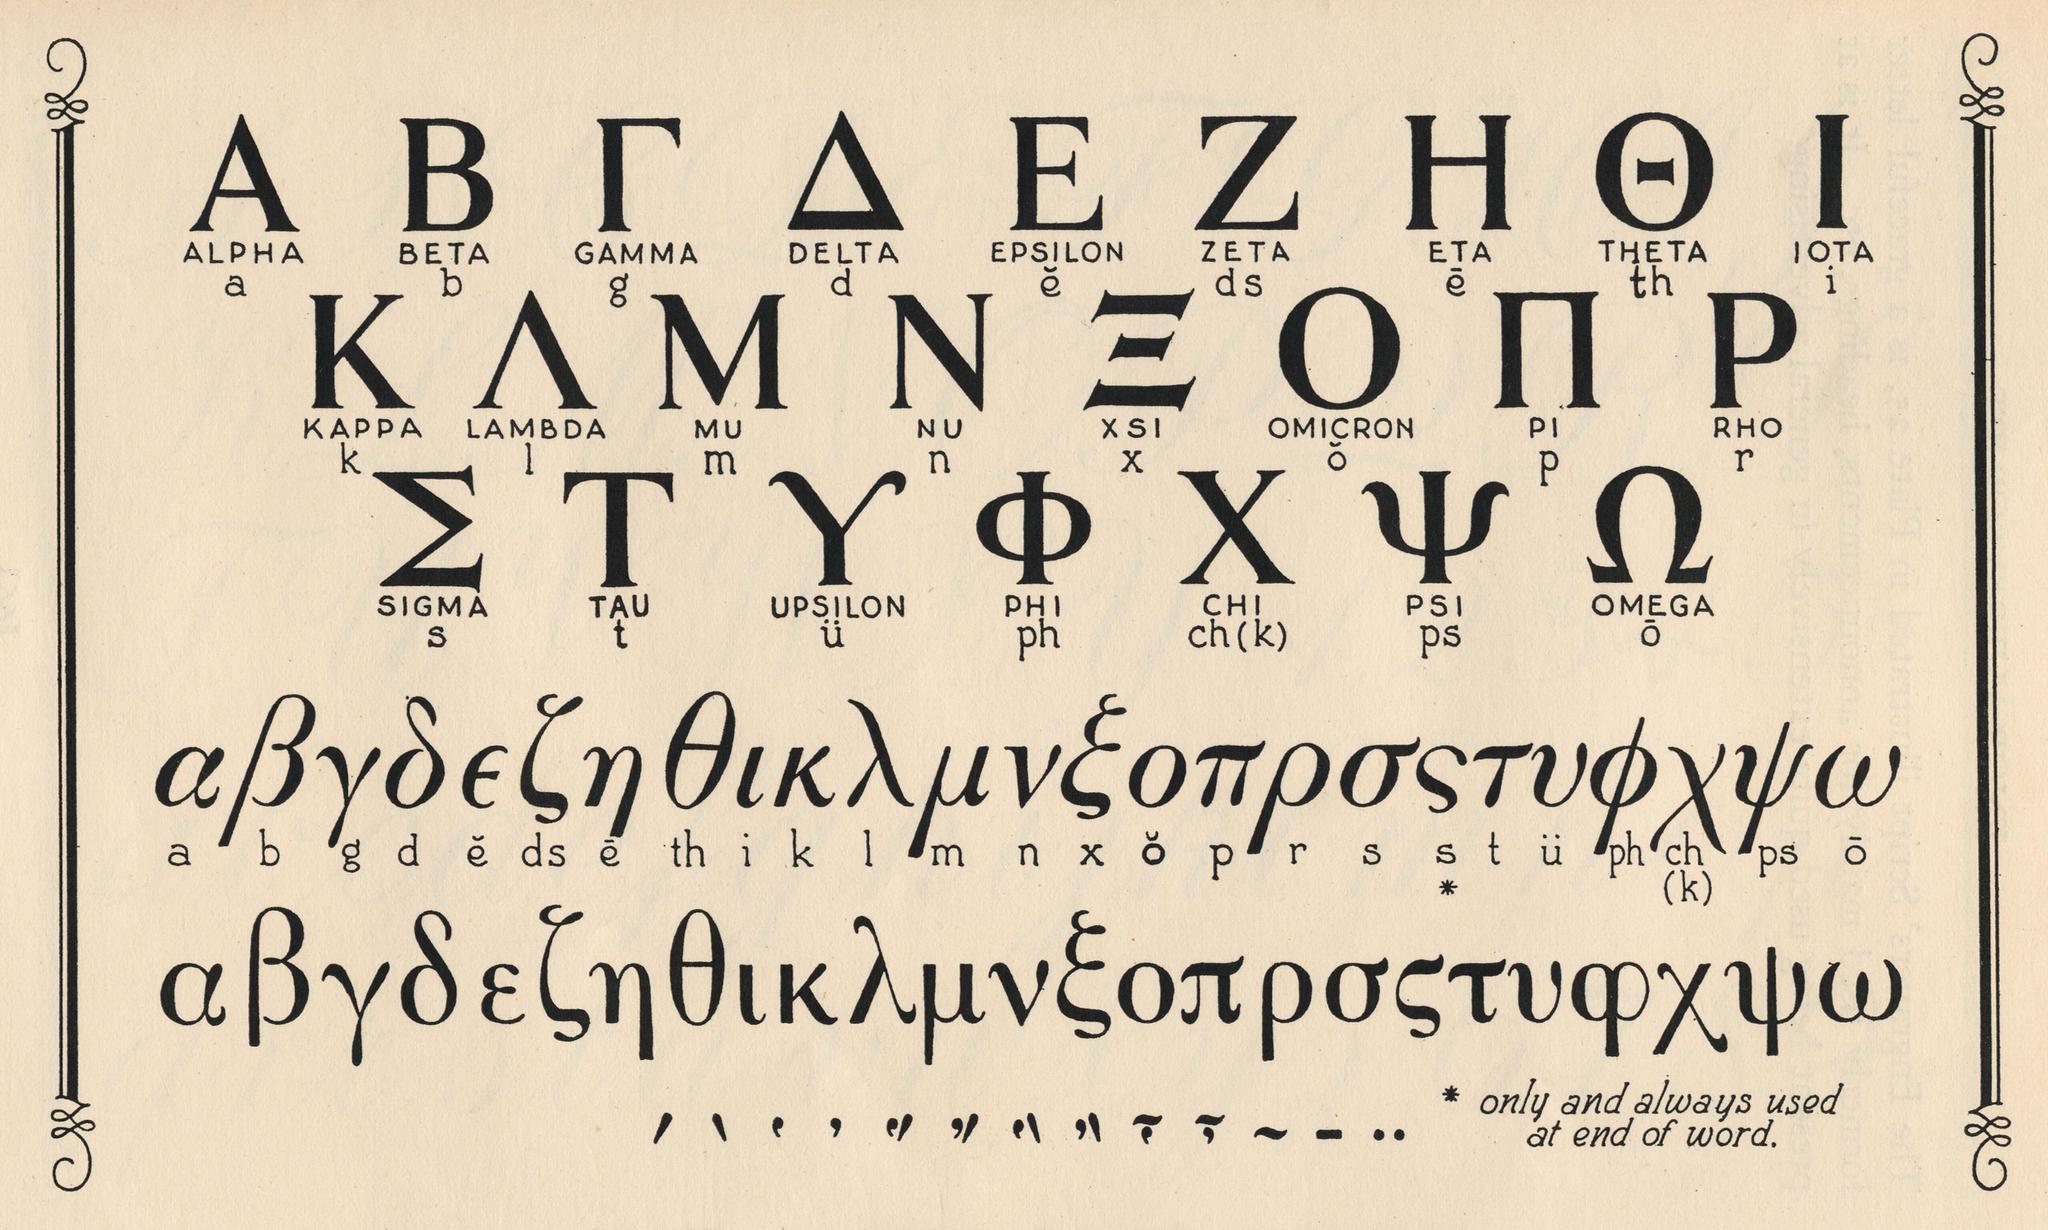 Α Β Γ Δ Ε Ζ Η Θ Ι
ALPHA BETA GAMMA DELTA EPSILON ZETA ETA THETA IOTA
a b g d ĕ ds ē th i
Κ Λ Μ Ν Ξ Ο Π Ρ
KAPPA LAMBDA MU NU XSI OMICRON PI RHO
k l m n x ŏ p r
Σ Τ Υ Φ Χ Ψ Ω
SIGMA TAU UPSILON PHI CHI PSI OMEGA
s t ü ph ch(k) ps ō
α β γ δ ϵ ζ η θ ι κ λ μ ν ξ ο π ρ σ ς τ υ ϕ χ ψ ω
a b g d ĕ ds ē th i k l m n x ŏ p r s s t ü ph ch ps ō
* (k)
α β γ δ ε ζ η θ ι κ λ μ ν ξ ο π ρ σ ς τ υ φ χ ψ ω
* only and always used
at end of word.